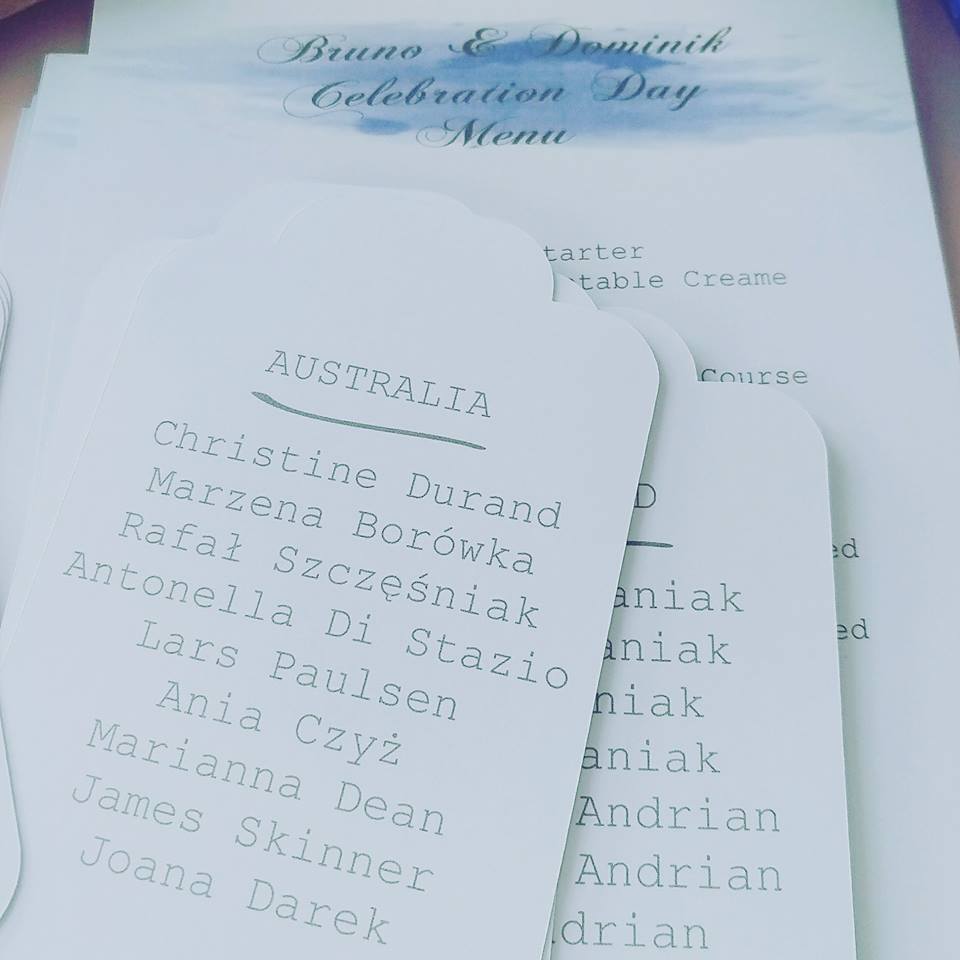 Bruno & Dominik
Celebration Day
Menu
tarter
table Creame
Course
ed
ed
AUSTRALIA
Christine Durand
Marzena Borówka
Rafał Szczęśniak
Antonella Di Stazio
Lars Paulsen
Ania Czyż
Marianna Dean
James Skinner
Joana Darek
D
aniak
aniak
niak
aniak
Andrian
Andrian
drian